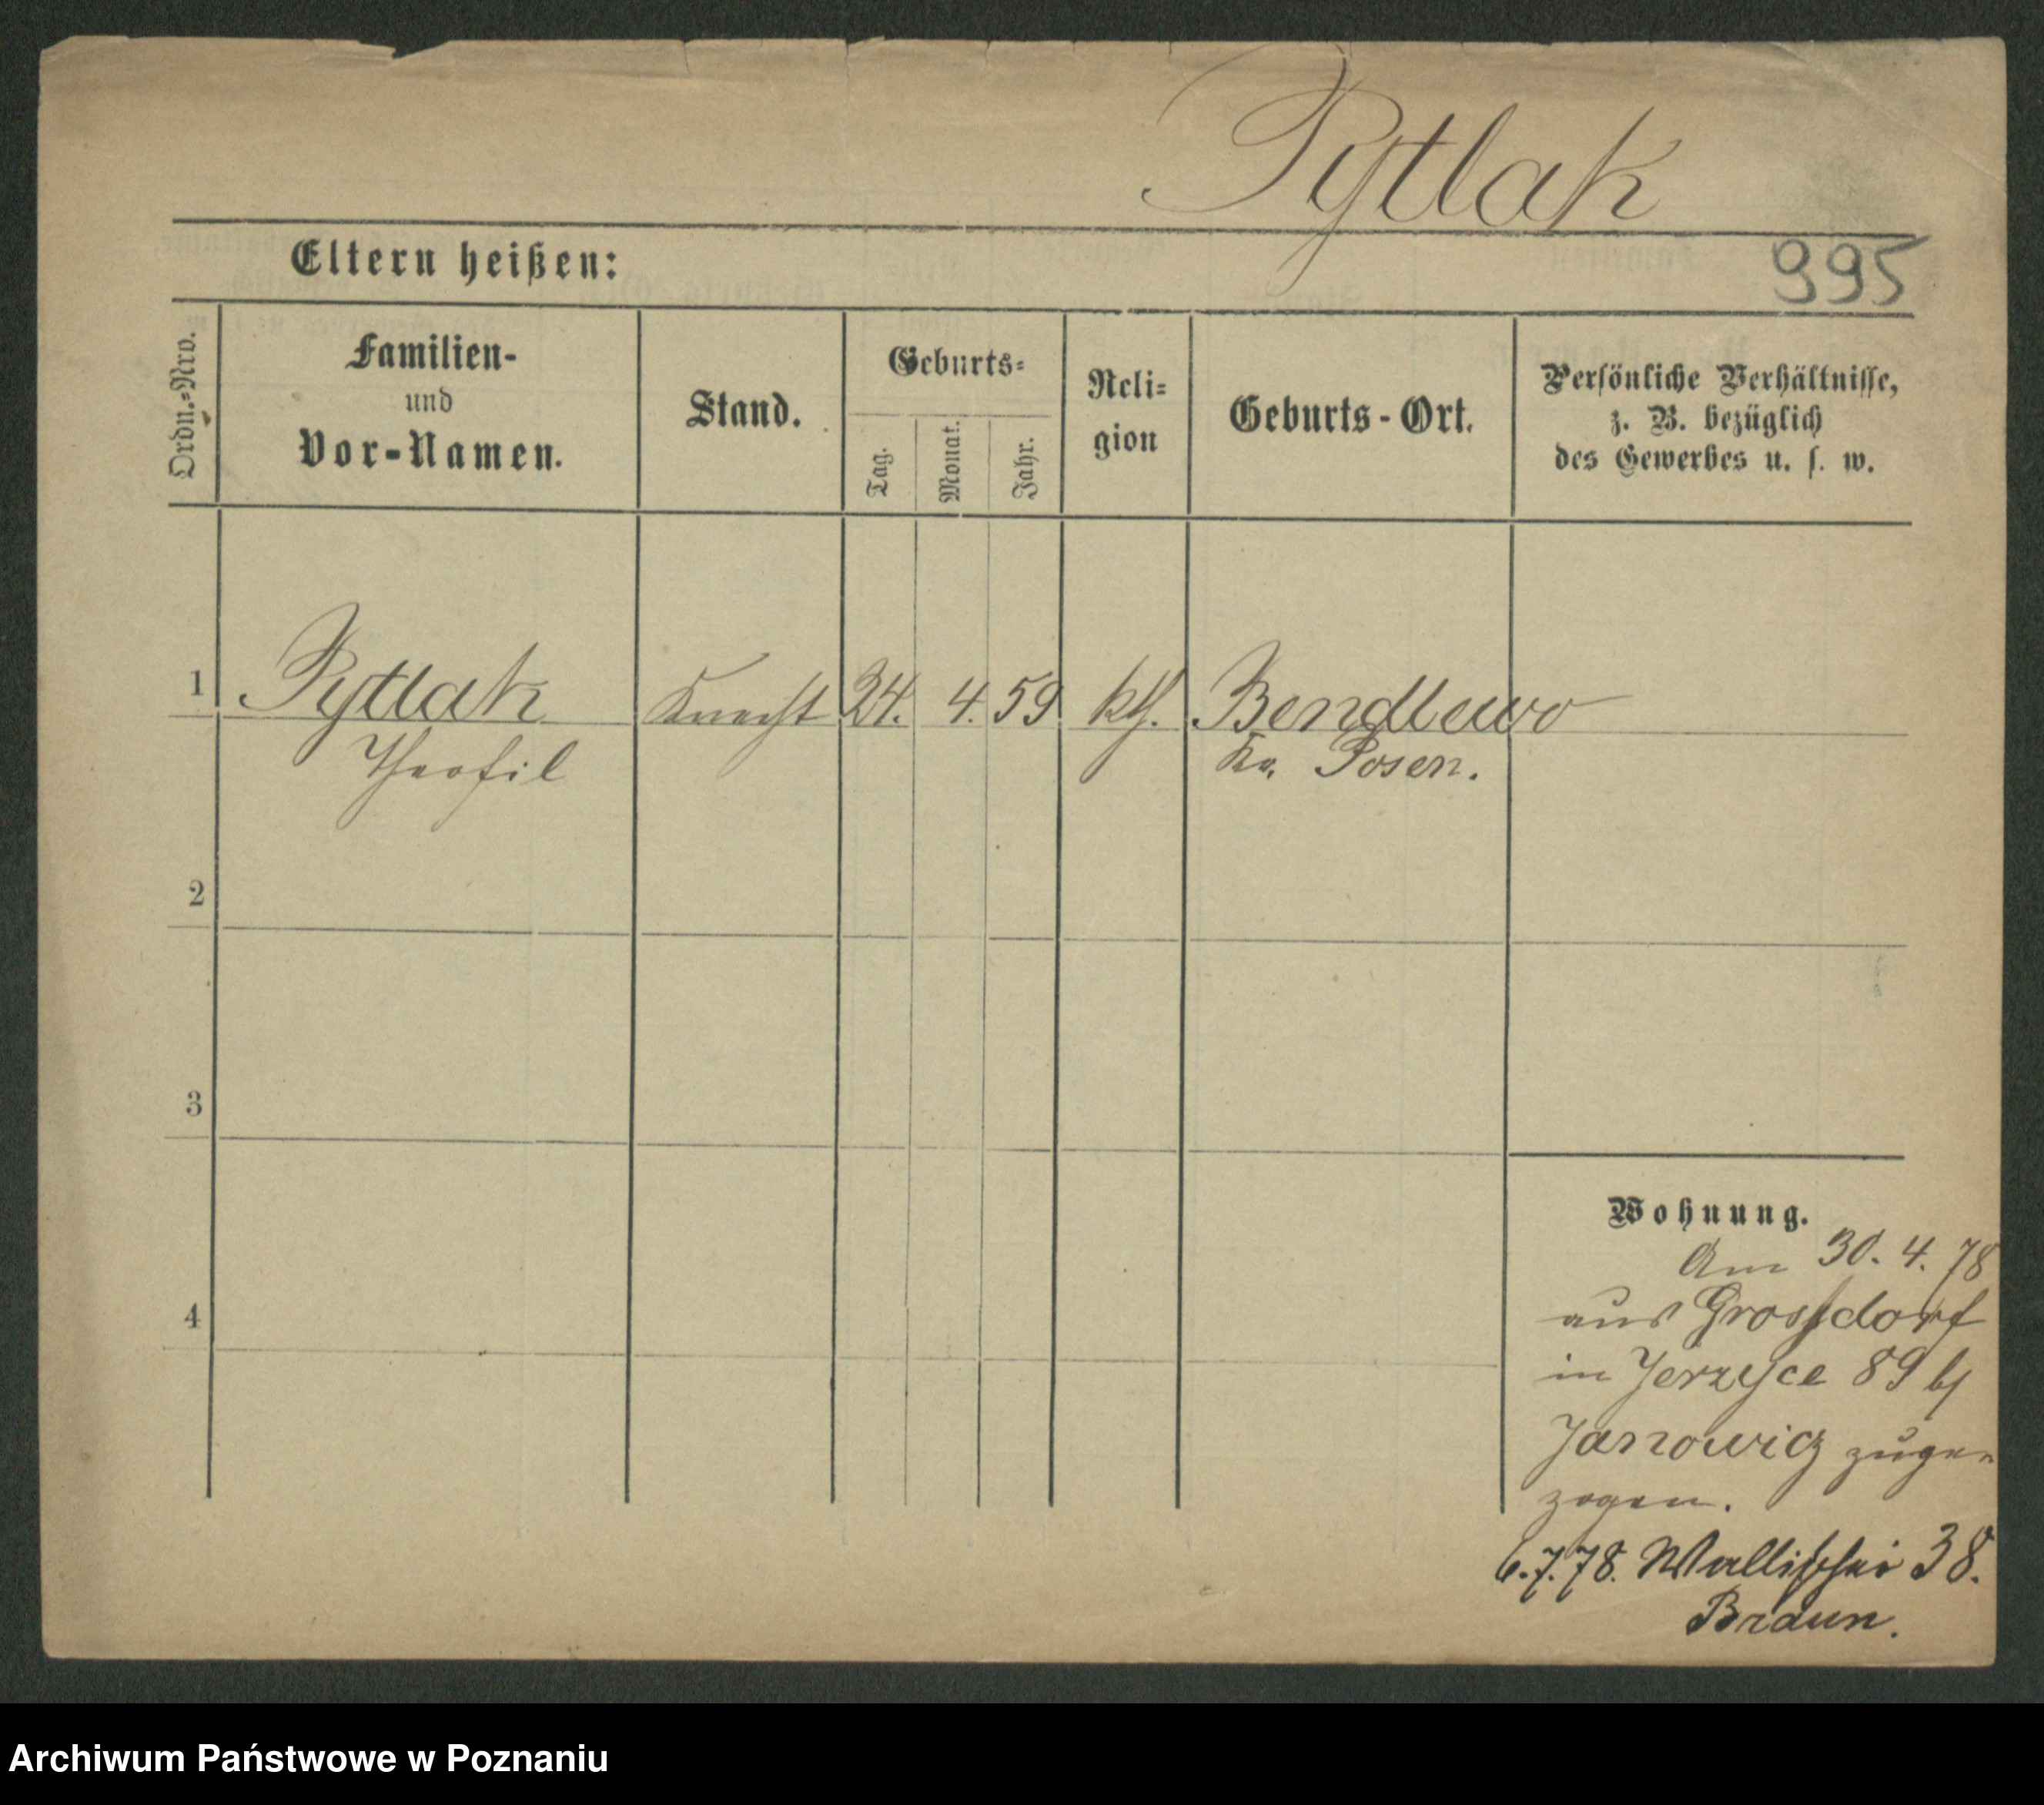 Pytlak
Eltern heißen:
995
Ordn.-Nro.
Familien-
und
Vor-Namen.
Stand.
Geburts-
Tag.
Monat.
Jahr.
Reli-
gion
Geburts-Ort.
Persönliche Verhältnisse,
z. B. bezüglich
des Gewerbes u. s. w.
1 Pytlak Knecht 24. 4. 59 kth. Bendlewo
Theofil Kr. Posen.
2
3
4
Wohnung.
Am 30. 4. 78
aus Grossdorf
in Jerzyce 89 b/
Janowicz zuge-
zogen.
6.7.78. Wallischei 38.
Braun.
Archiwum Państwowe w Poznaniu